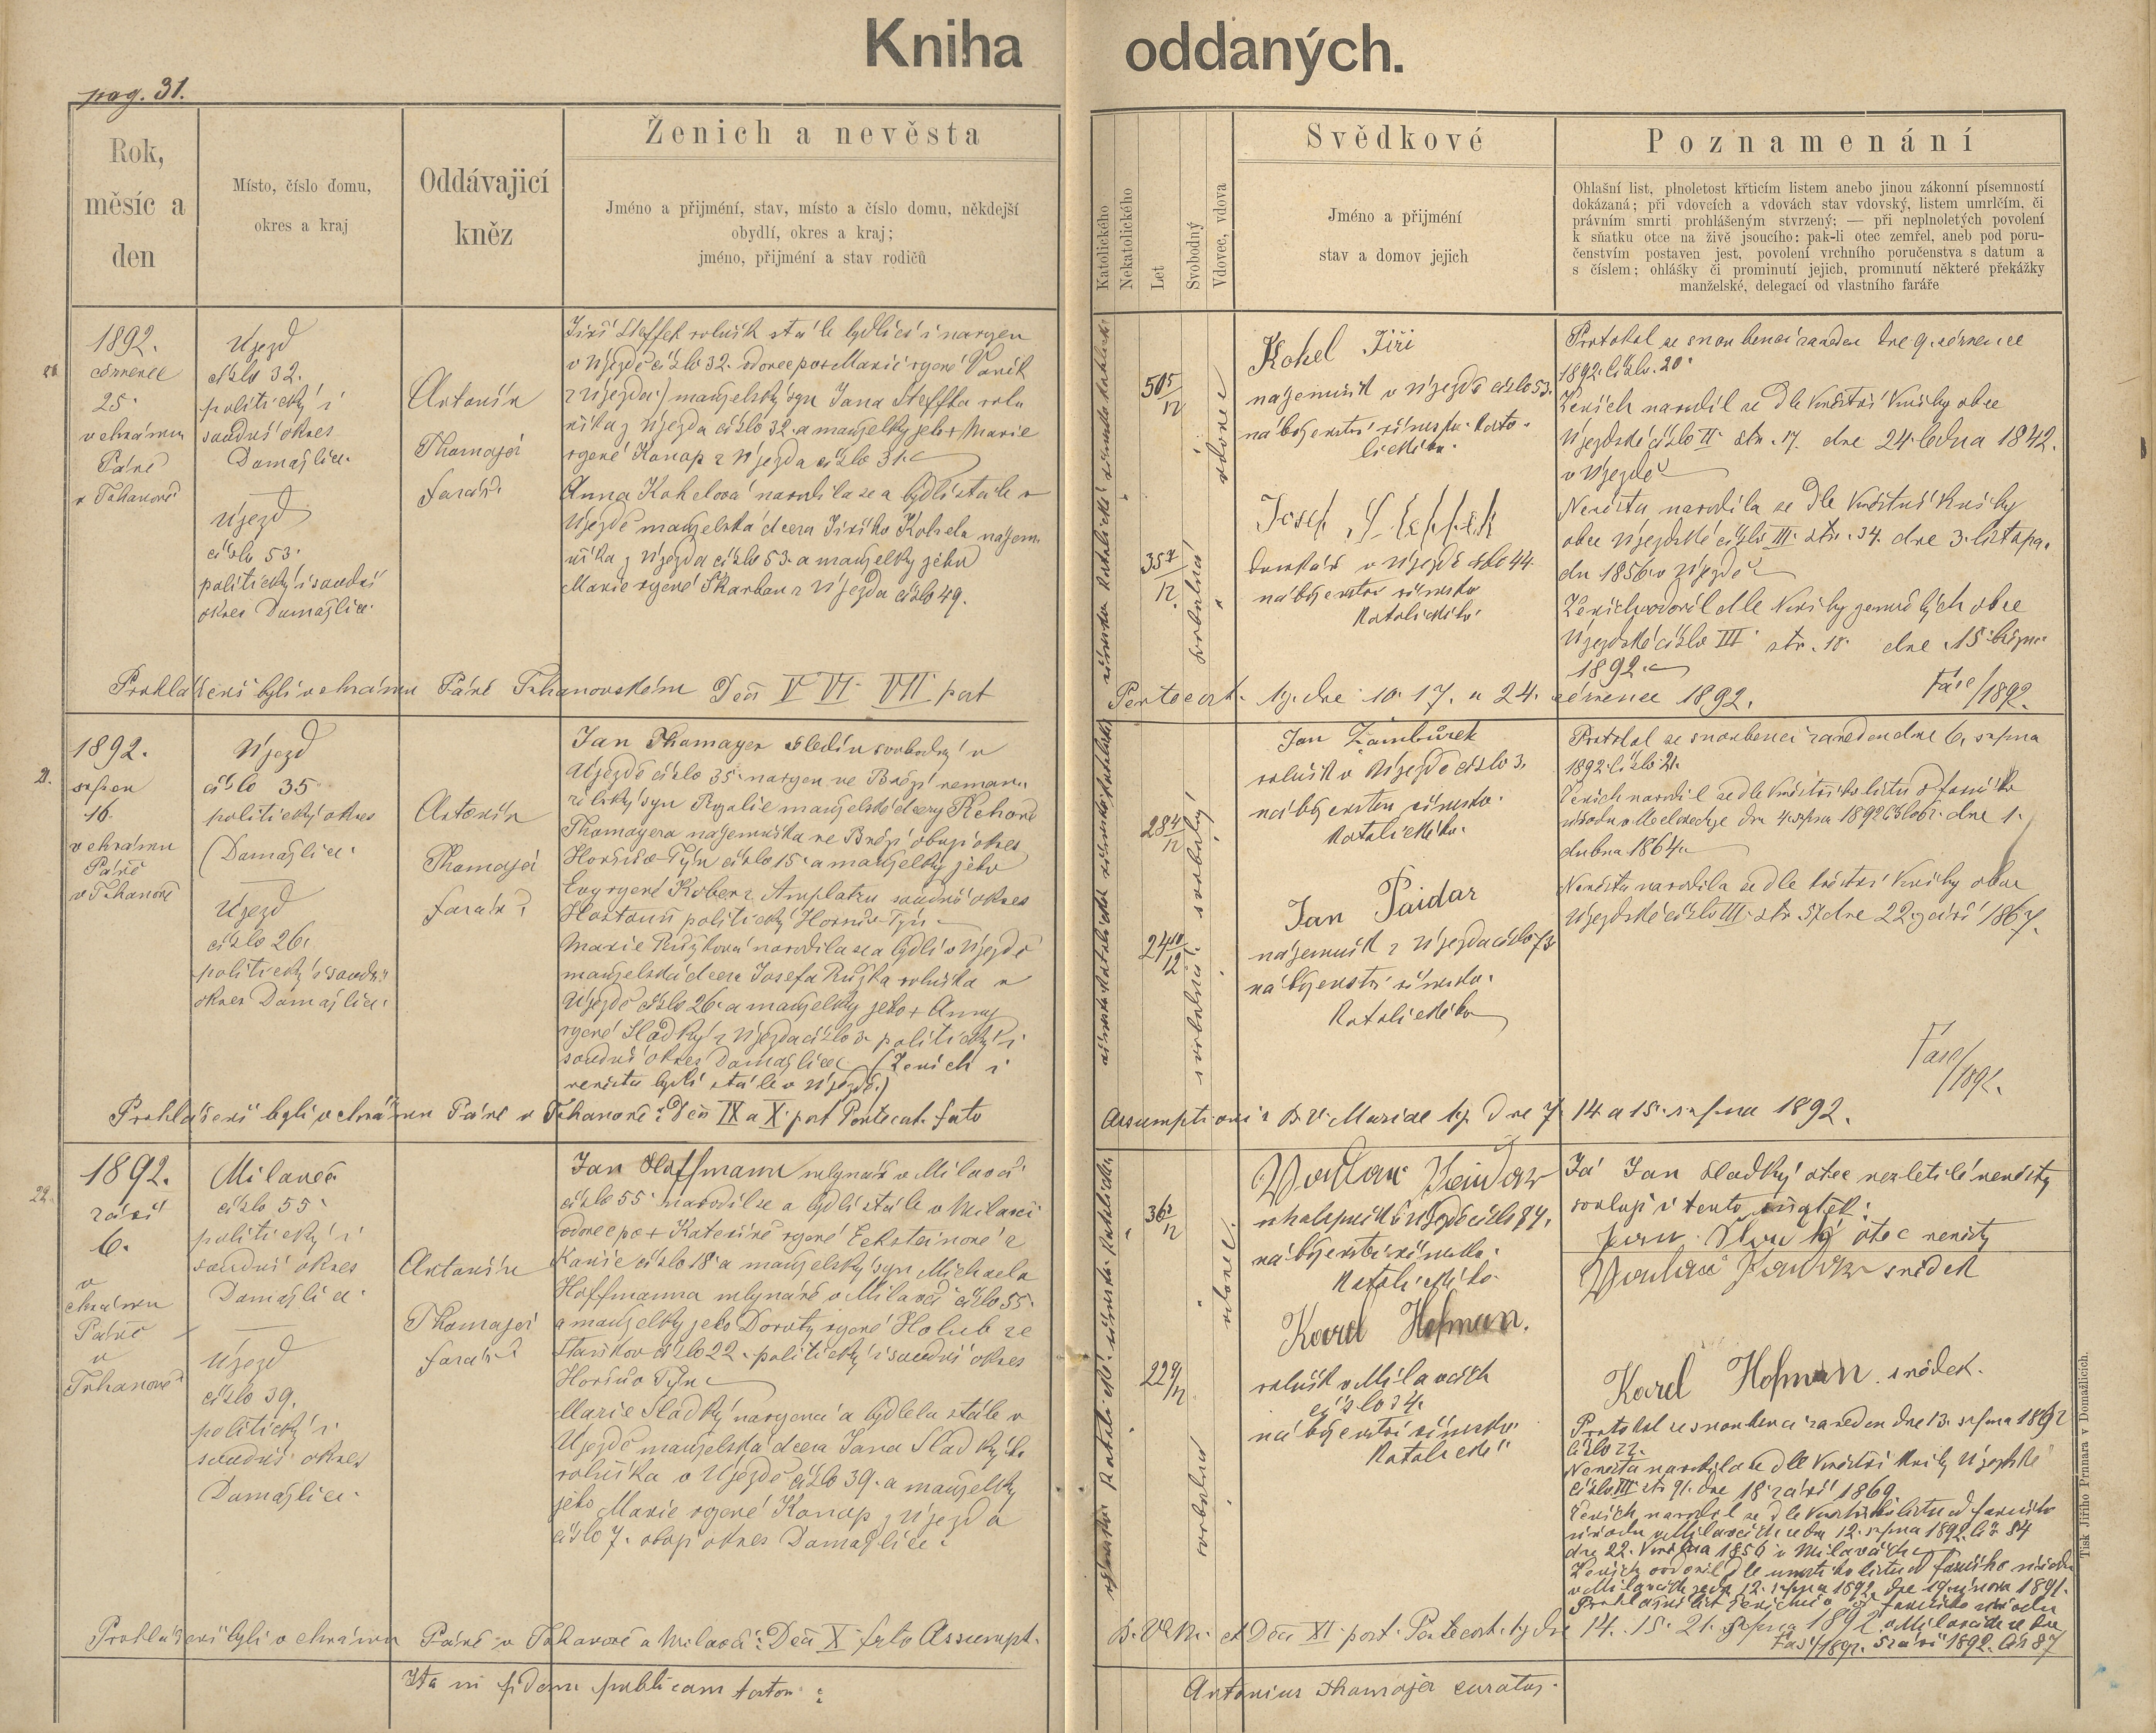 Kniha oddaných.
pag. 31.
Rok,
měsíc a
den
Místo, číslo domu,
okres a kraj
Oddávajicí
kněz
Ženich a nevěsta
Jméno a přijmení, stav, místo a číslo domu, někdejší
obydlí, okres a kraj;
jméno, přijmení a stav rodičů
Katolického
Nekatolického
Let
Svobodný
Vdovec, vdova
Svědkové
Jméno a přijmení
stav a domov jejich
Poznamenání
Ohlašní list, plnoletost křticím listem anebo jinou zákonní písemností
dokázaná; při vdovcích a vdovách stav vdovský, listem umrlčím, či
právním smrti prohlášeným stvrzený; — při neplnoletých povolení
k sňatku otce na živě jsoucího: pak-li otec zemřel, aneb pod poru-
čenstvím postaven jest, povolení vrchního poručenstva s datum a
s číslem; ohlášky či prominutí jejich, prominutí některé překážky
manželské, delegací od vlastního faráře
1892.
července
25.
v chrámu
Páně
v Trhanově
Újezd
číslo 32.
politický i
soudní okres
Domažlice.
Újezd
číslo 53.
politický i soudní
okres Domažlice.
Antonín
Thomajer
farář
Jiří Steffek rolník stále bydlící i narozen
v Újezdě číslo 32. vdovec po Marii rozené Vaněk
z Újezda) manželský syn Jana Steffka rol
níka z Újezda číslo 32. a manželky jeho Marie
rozené Konop z Újezda číslo 31.
Anna Kohelová narodila se a bydlí stále v
Újezdě manželská dcera Jiřího Kohela nájem
níka z Újezda číslo 53. a manželky jeho
Marie rozené Skarban z Újezda číslo 49.
50 5/12
vdovec
35 /12
svobodná
Kohel Jiří
nájemník v Újezdě číslo 53.
náboženství římsko-kato-
lického.
Josef Steffek
v Újezdě číslo 44.
náboženství římsko
katolického.
Protokol se snoubenci zaveden dne 9. července
1892. číslo 20.
Ženich narodil se dle křestní knihy obce
Újezdské číslo II. str. 17. dne 24. ledna 1842.
v Újezdě
Nevěsta narodila se dle křestní knihy
obce Újezdské číslo III. str. 34. dne 3. listopa.
du 1856 v Újezdě
Ženich ovdověl dle knihy zemřelých obce
Újezdské číslo III. str. 18. dne 15. března
1892.
Fasc/1892.
Prohlášení byli v chrámu Páně Trhanovském Dca V VI. VII post
Pentecost. tj. dne 10. 17. a 24. července 1892.
21.
1892.
srpen
16.
v chrámu
Páně
v Trhanově
Újezd
číslo 35
politický okres
(Domažlice.
Újezd
číslo 26.
politický i soudní
okres Domažlice.
Antonín
Thomajer
farář
Jan Thomayer svobodný v
Újezdě číslo 35. narozen ve Brözi neman.
želský syn Rozalie manželské dcery Řehoře
Thomayera nájemníka ve Brözi obojí okres
Horšův Týn číslo 15. a manželky jeho
Evy rozené Kober z Amplatzu soudní okres
Hostouň politický Horšův Týn
Marie Růžkova narodila se a bydlí v Újezdě
manželská dcera Josefa Růžka rolníka v
Újezdě číslo 26. a manželky jeho + Anny
rozené Sladký z Újezda číslo 3. politický i
soudní okres Domažlice (Ženich i
nevěsta bydlí stále v Újezdě.)
28 4/12
svobodný
24 10/12
svobodná
Jan Žambůrek
rolník v Újezdě číslo 3.
náboženství římsko.
katolického.
Jan Paidar
nájemník z Újezda číslo 73
náboženství římsko.
katolického
Protokol se snoubenci zaveden dne 6. srpna
1892. číslo 21.
Ženich narodil se dle křestního listu od farního
dne 4. srpna 1892 číslo 67. dne 1.
dubna 1864
Nevěsta narodila se dle křestní knihy obce
Újezdské číslo III. str. 57. dne 22. září 1867.
Fasc/1892.
Prohlášení byli v chrámu Páně v Trhanově: Dca IX a X. post Pentecost. festo
Assumptionis B.V. Mariae tj. dne 7. 14. a 15. srpna 1892.
22.
1892.
září
6.
v
chrámu
Páně
v
Trhanově
Milaveč
číslo 55.
politický i
soudní okres
Domažlice.
Újezd
číslo 39.
politický i
soudní okres
Domažlice.
Antonín
Thomajer
farář
Jan Hoffmann mlynář v Milavči
číslo 55. narodil se a bydlí stále v Milavči
vdovec po + Kateřině rozené Ecksteinové z
Kanic číslo 18. a manželský syn Michaela
Hoffmanna mlynáře v Milavči číslo 55.
a manželky jeho Doroty rozené Holub ze
Staňkov číslo 22. politický i soudní okres
Horšův Týn
Marie Sladký narozena a bydlela stále v
Újezdě manželská dcera Jana Sladkýho
rolníka v Újezdě číslo 39. a manželky
jeho Marie rozené Konop z Újezda
číslo 7. obojí okres Domažlice.
36 /12
vdovec.
22 /12
svobodná
v Újezdě číslo 84.
náboženství římsko.
katolického.
Karel Hofman.
rolník v Milavčích
číslo 34.
náboženství římsko
katolické
Já Jan Sladký otec nezletilé nevěsty
svoluji v tento sňatek:
Jan Sladký otec nevěsty
svědek
Karel Hofman svědek.
Protokol se snoubenci zaveden dne 13. srpna 1892
číslo 22.
Nevěsta narodila se dle křestní knihy Újezdské
číslo III str. 91. dne 18. září 1869.
Ženich narodil se dle křestního listu od farního
úřadu v Milavčích ze dne 12. srpna 1892. čís 84
dne 22. května 1856 v Milavčích
Ženich ovdověl dle úmrtního listu od farního úřadu
v Milavčích ze dne 12. srpna 1892. dne 19. února 1891.
farního úřadu
v Milavčích ze dne
Fas/1892. 5. září 1892. čís 87
Prohlášení byli v chrámu Páně v Trhanově a Milavči: Dca X. festo Assumpt.
B.V.M. et Dca XI. post. Pentecost. tj. dne 14. 15. 21. srpna 1892
Ita in fidem publicam testor:
Antonius Thomajer curatus.
Tisk Jiřího Prunara v Domažlicích.